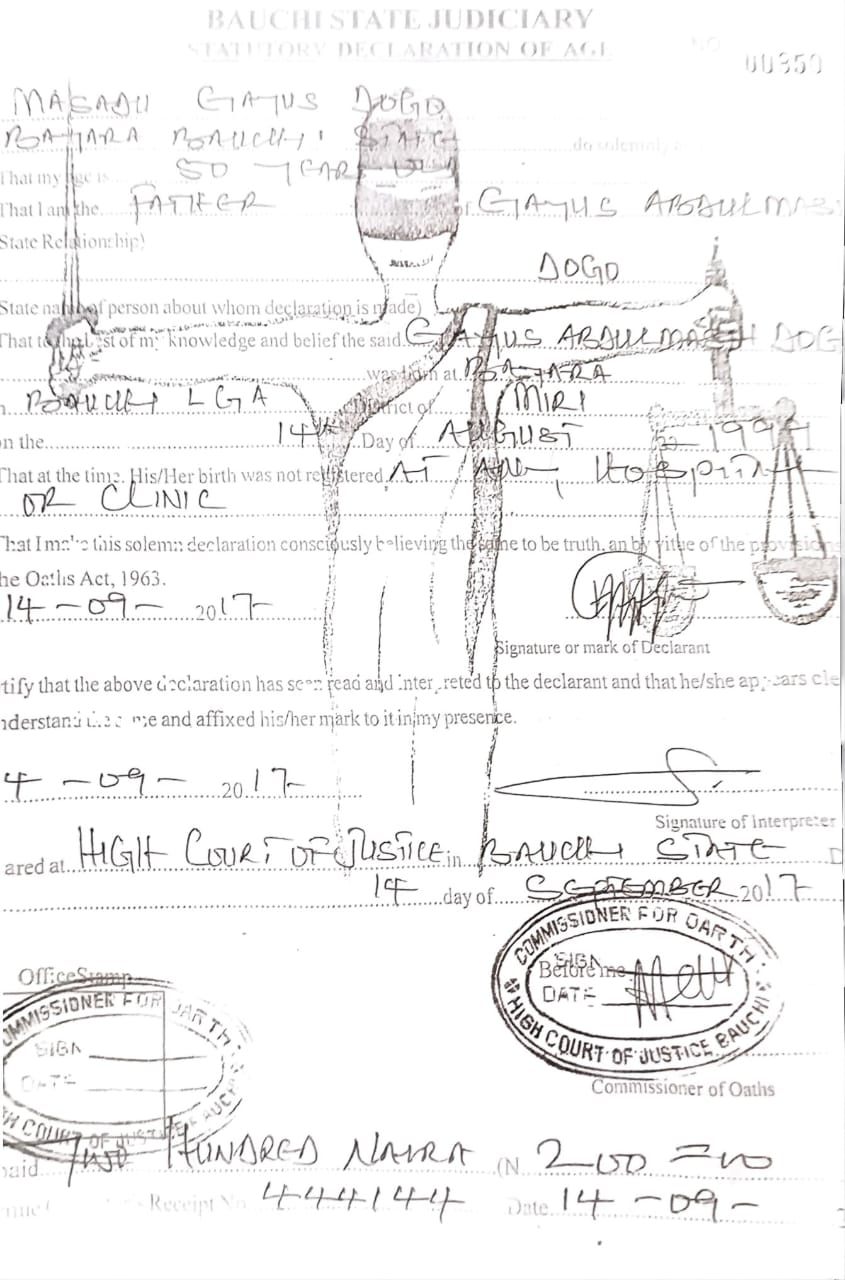 BAUCHI STATE JUDICIARY
STATUTORY DECLARATION OF AGE
NO 00350
MASADU GAYUS DOGO
BAYARA BAUCHI STATE do solemnly
That my age is 50 YEARS OLD
That I am the FATHER of GAYUS ABDULMAS
State Relationship)
DOGO
State name of person about whom declaration is made)
That to the best of my knowledge and belief the said GAYUS ABDULMASIH DOG
was born at BAYARA
BAUCHI LGA District of MIRI
n the 14th Day of AUGUST
That at the time. His/Her birth was not registered AT ANY HOSPITAL
OR CLINIC
That I make this solemn declaration consciously believing the same to be truth, an by vitue of the provision
he Oaths Act, 1963.
14-09- 2017
Signature or mark of Declarant
tify that the above declaration has seen read and interpreted to the declarant and that he/she appears cle
nderstand the same and affixed his/her mark to it in my presence.
4-09- 2017
Signature of Interpreter
ared at HIGH COURT OF JUSTICE in BAUCHI STATE D
14 day of SEPTEMBER 2017
COMMISSIONER FOR OARTH
SIGN
Before me
DATE
HIGH COURT OF JUSTICE BAUCHI
Office Stamp
OMMISSIONER FOR OARTH
SIGN
DATE
H COURT OF JUSTICE BAUCHI
Commissioner of Oaths
paid TWO HUNDRED NAIRA (N 200=00
Receipt No 444144 Date 14-09-